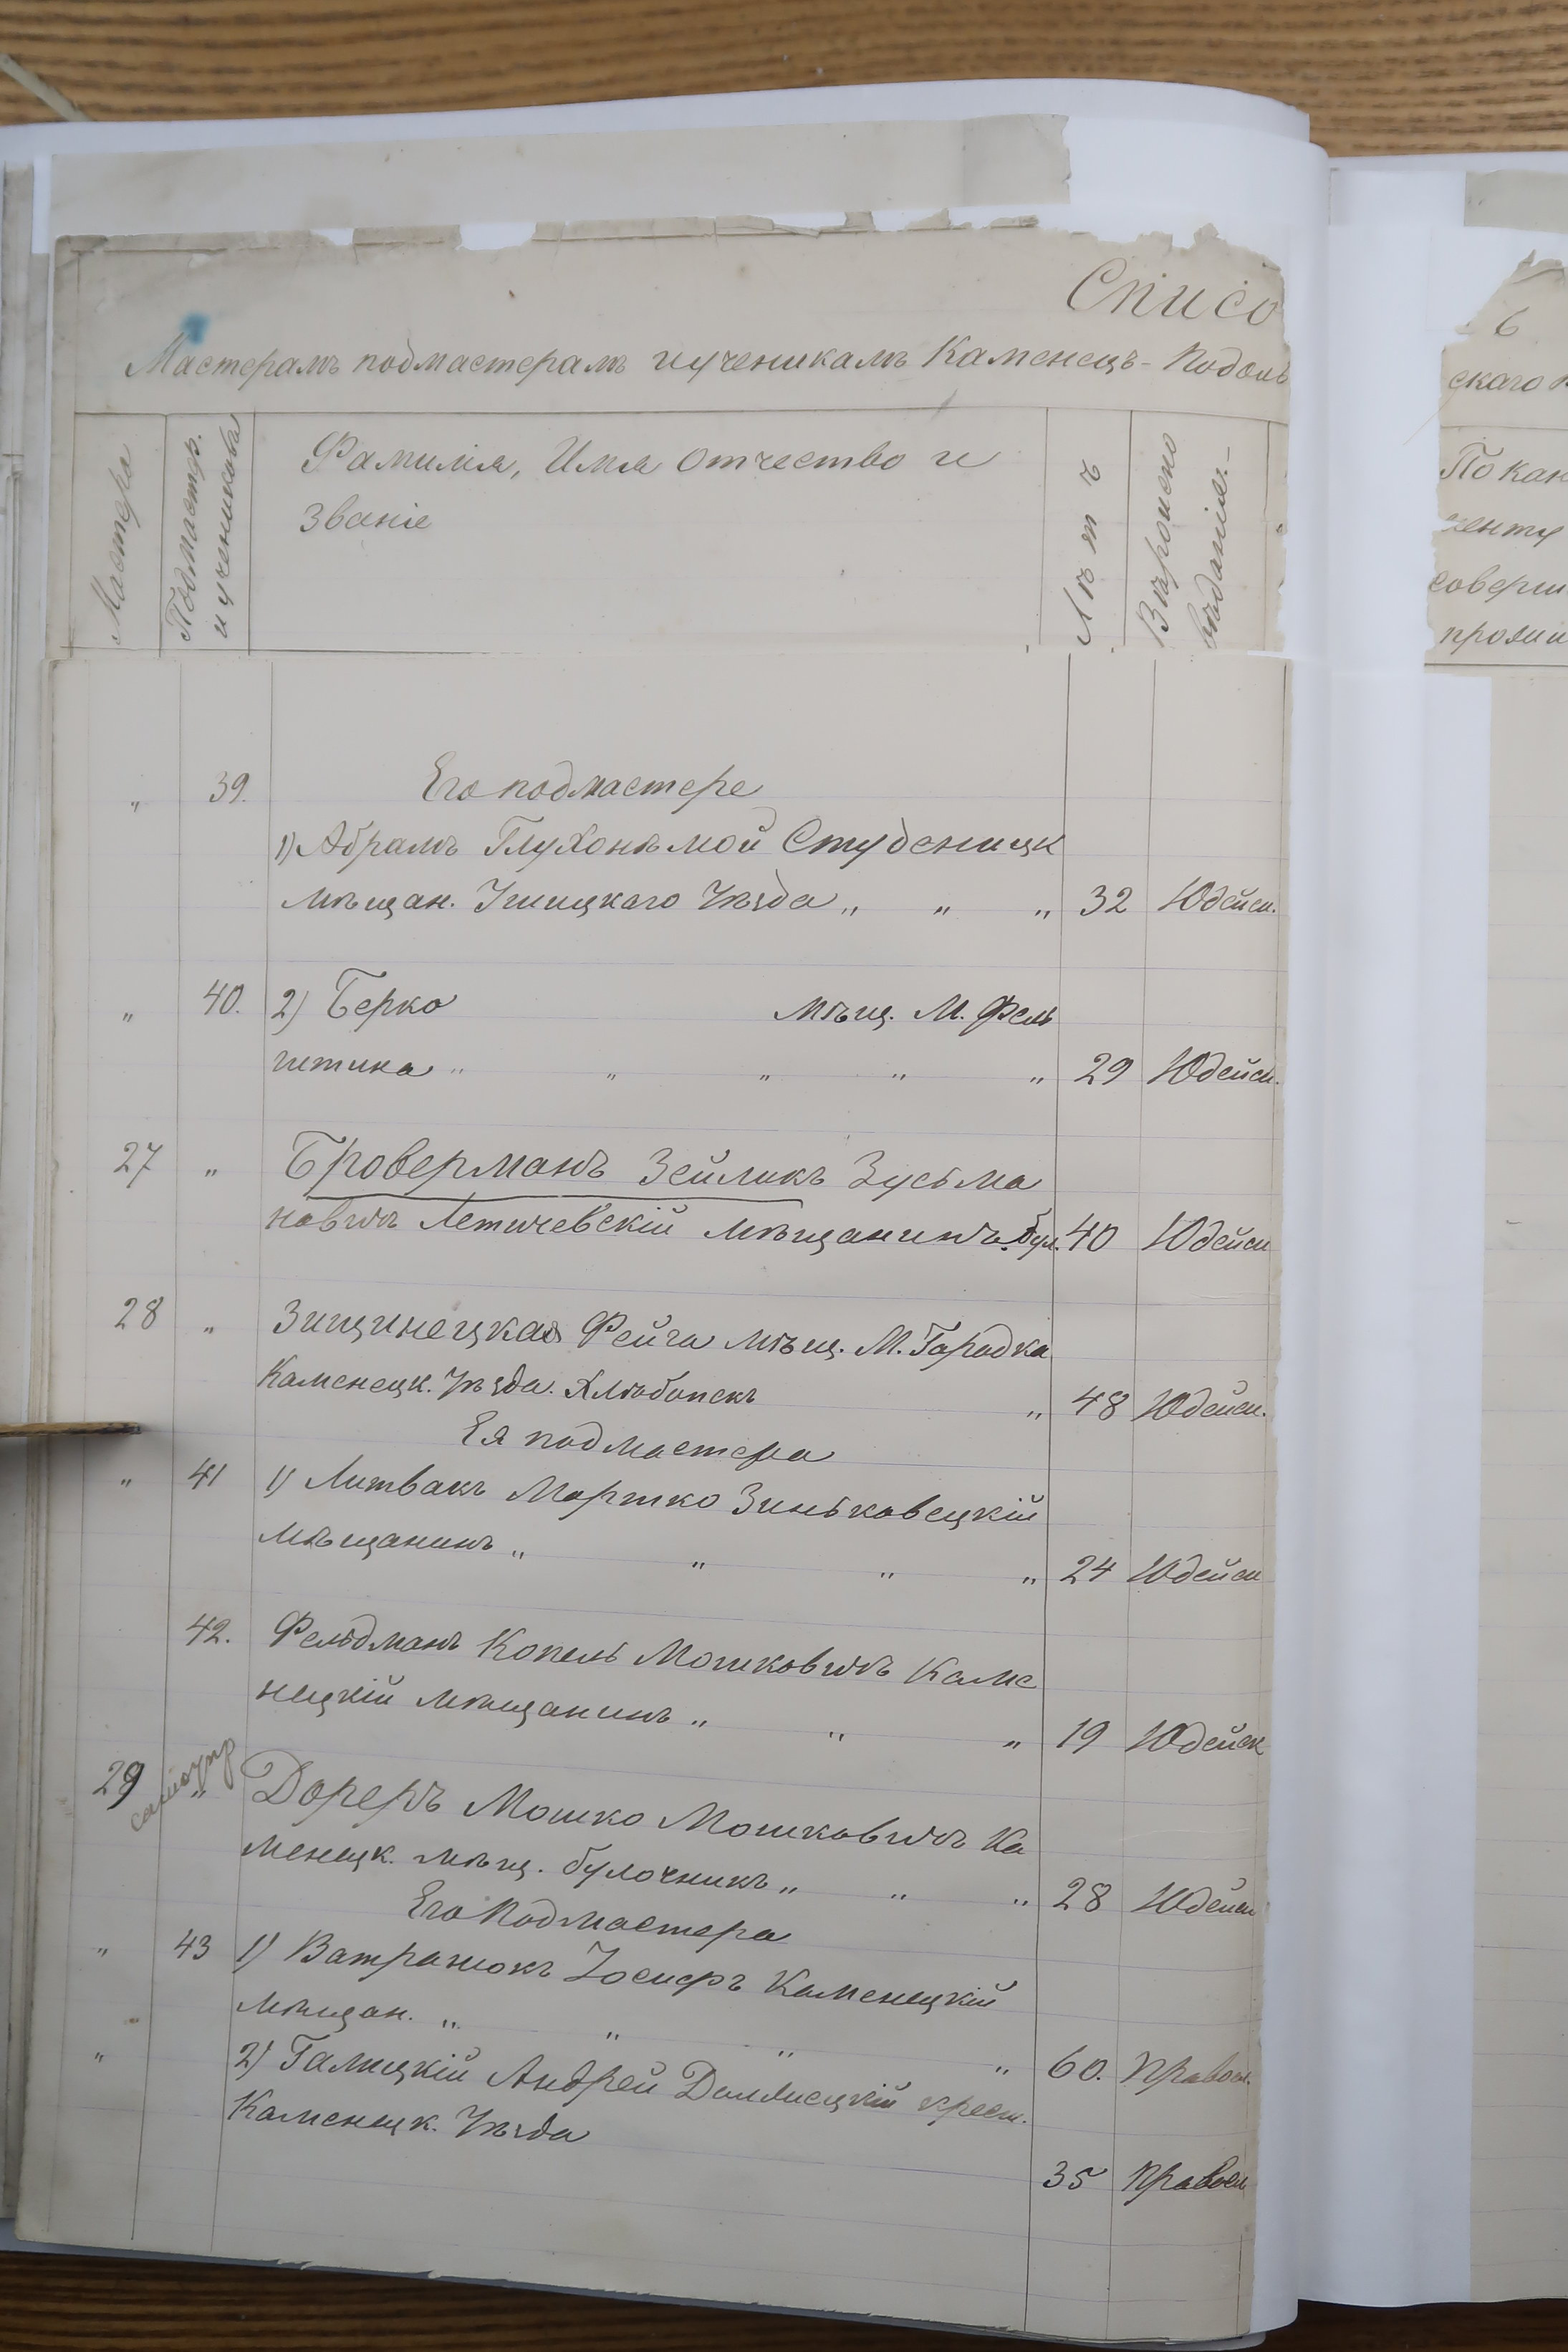 Списо
Мастерамъ подмастерамъ и ученикамъ Каменецъ-Подоль
Мастера
Подмастер.
и ученикова
Фамилія, Имя отчество и
званіе
Лѣтъ
Вѣроиспо
вѣданія.-
" 39. Его подмастере
1) Абрамъ Глухонѣмой Студеницк
мѣщан. Ушицкаго Уѣзда " " " 32 Юдейск.
" 40. 2) Берко мѣщ. М. Фель
штина " " " " " 29 Юдейск.
27 " Броверманъ Зейликъ Зусьма
новичъ Летичевскій мѣщанинъ. бул. 40 Юдейск
28 " Зищинецкая Фейга мѣщ. М. Городка
Каменецк. Уѣзда. Хлѣбопекъ " 48 Юдейск.
Ея подмастера
" 41 1) Литвакъ Мортко Зиньковецкій
мѣщанинъ " " " " 24 Юдейск
42. Фельдманъ Копель Мошковичъ Каме
нецкій мѣщанинъ " " " 19 Юдейск
29 " Дореръ Мошко Мошковичъ Ка
менецк. мѣщ. булочникъ " " " 28 Юдейск
Его подмастера
" 43 1) Ватранюкъ Іосифъ Каменецкій
мѣщан. " " " " 60. Правосл.
" 2) Галицкій Андрей крест.
Каменецк. Уѣзда
35 Правосл
6
скаго
По кан
соверш